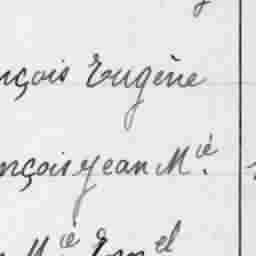 nçois Eugène
nçois Jean M.ie
M.ie